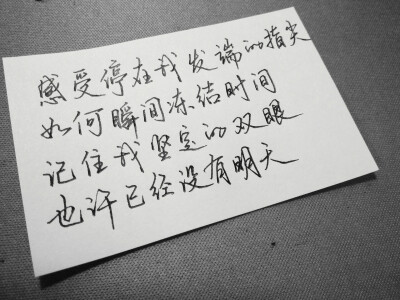 感受停在我发端的指尖
如何瞬间冻结时间
记住我坚定的双眼
也许已经没有明天